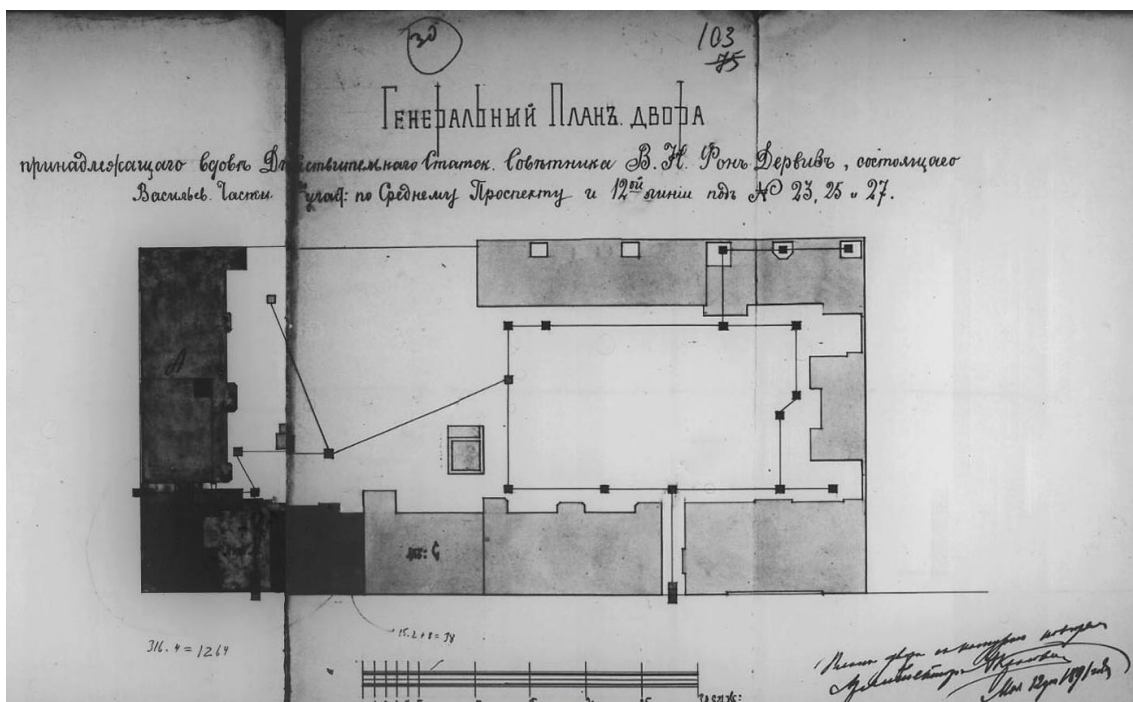 30
103
75
Генеральный Планъ двора
принадлежащаго вдовѣ Дѣйствительнаго Статск. Совѣтника В. Н. Фонъ Дервизъ, состоящаго
Васильев. Части. участ: по Среднему Проспекту и 12ой линіи подъ № 23, 25 и 27.
А
лит: С
316. 4 = 1264
15. 2 + 8 = 38
саж:
Архитекторъ
Мая 12 дня 1891 года